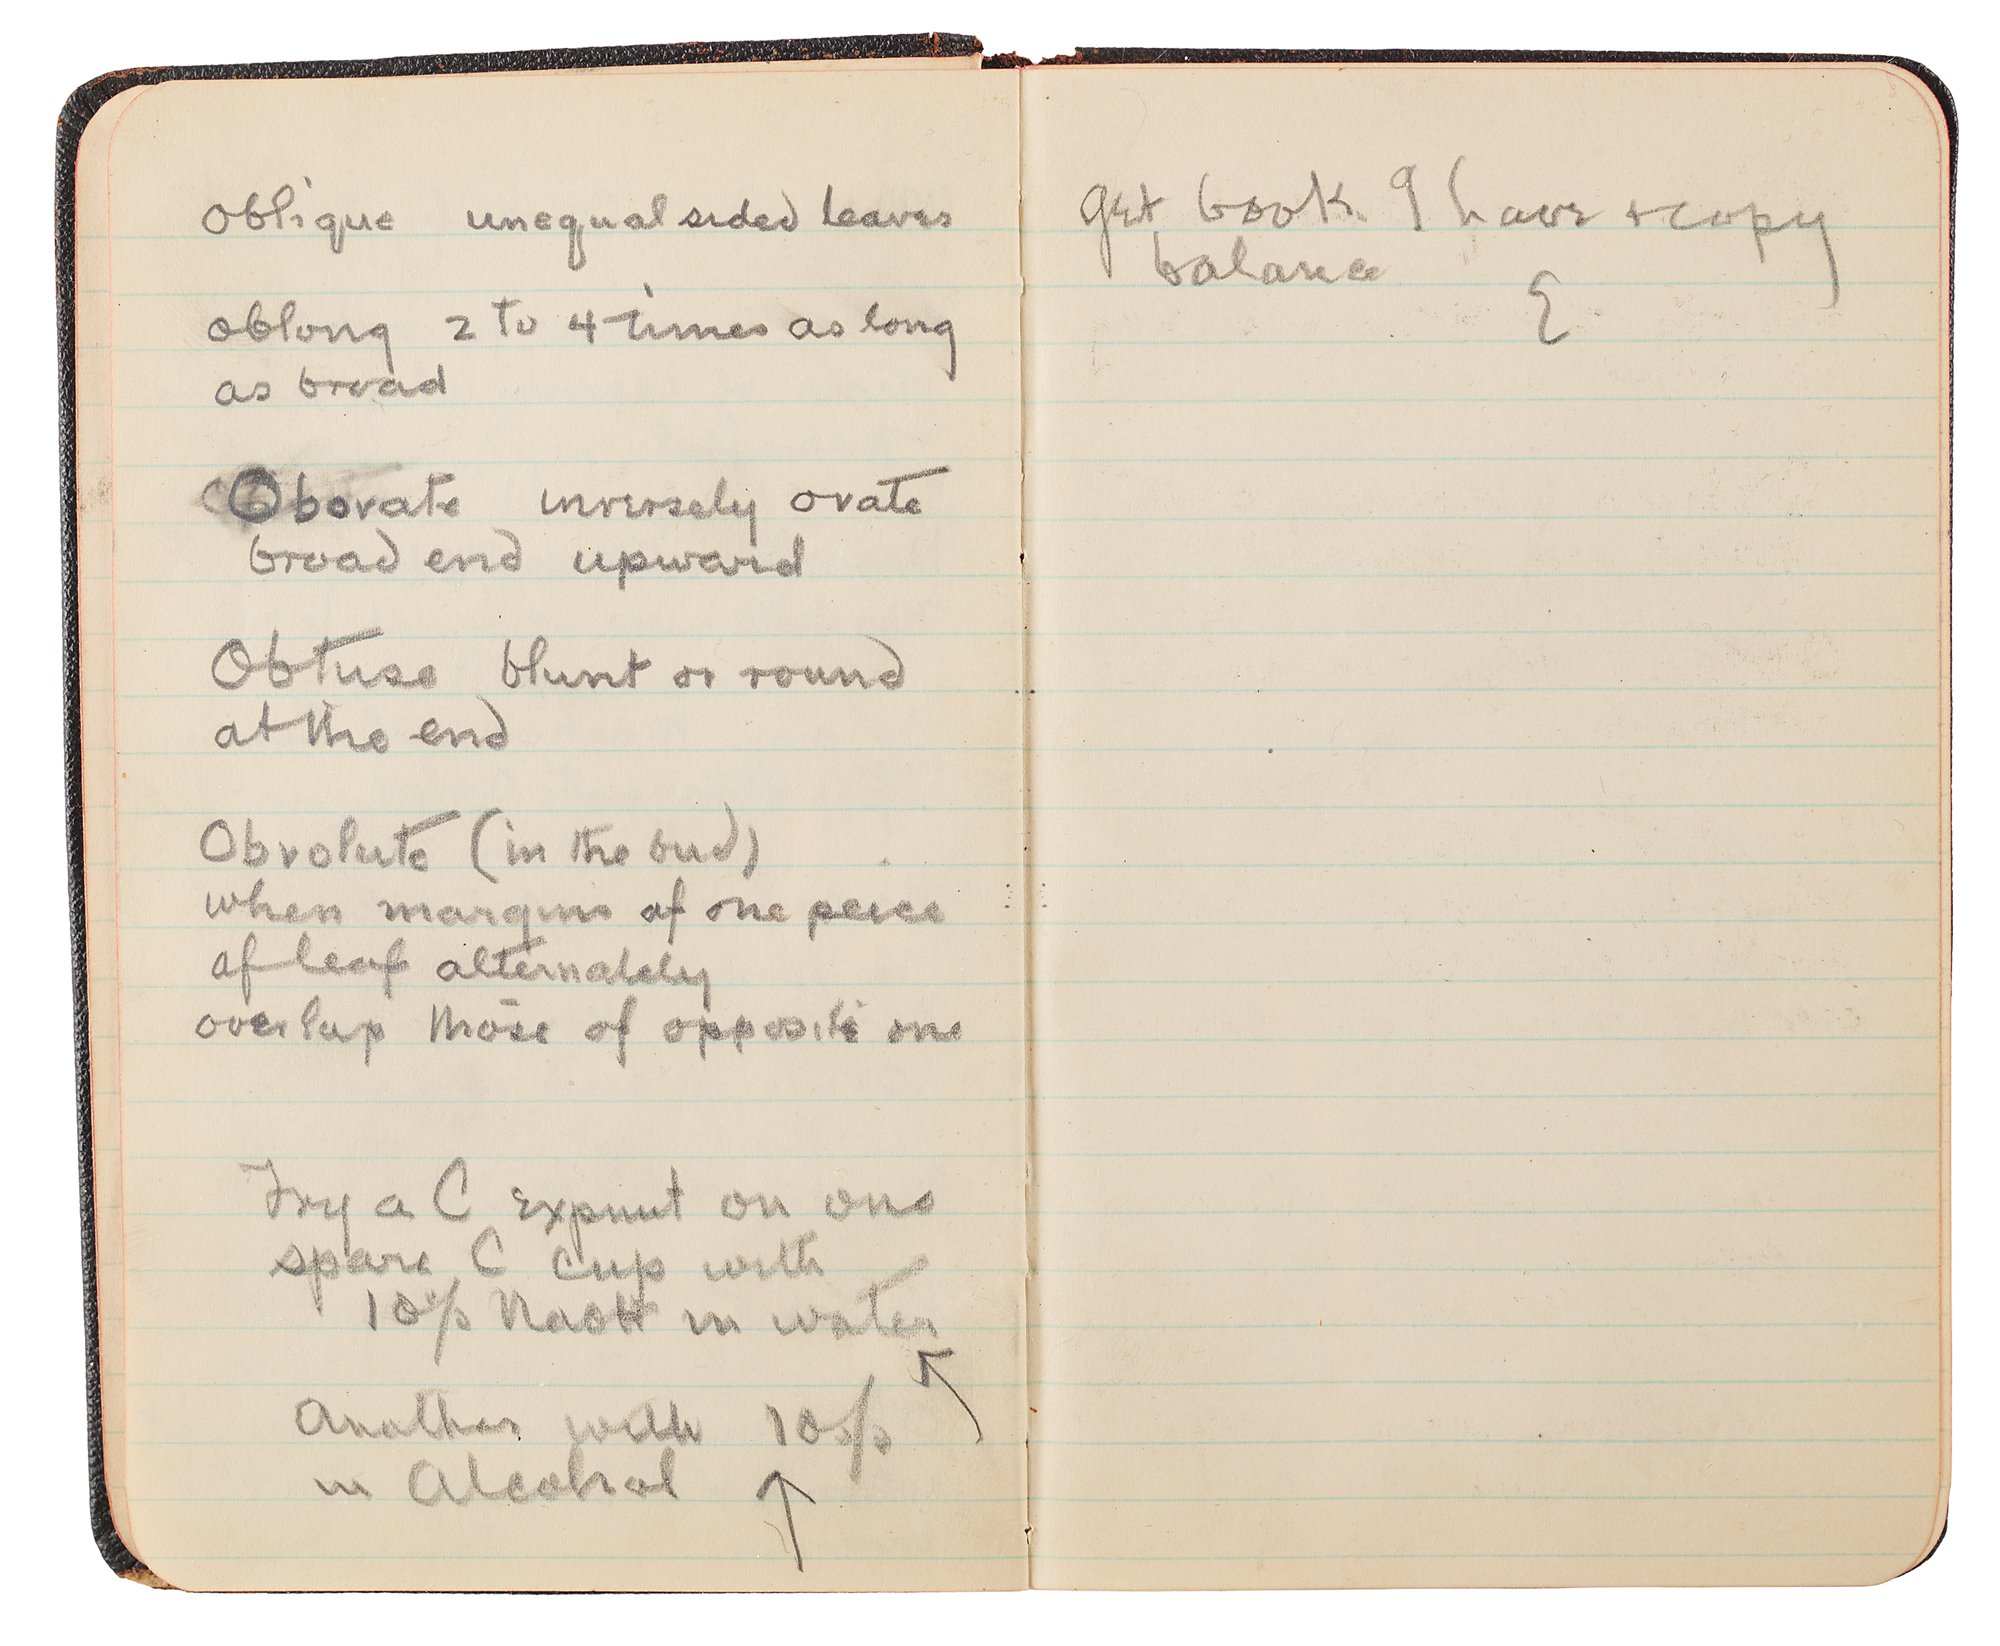 Oblique unequal sided leaves
oblong 2 to 4 times as long
as broad
Obovate inversely ovate
broad end upward
Obtuse blunt or round
at the end
Obvolute (in the bud)
when margins of one peice
of leaf alternately
overlap those of opposite one
Try a C expmt on one
spare C cup with
10% NaOH in water
Another with 10%
in Alcohol
Get book I have + copy
balance
E